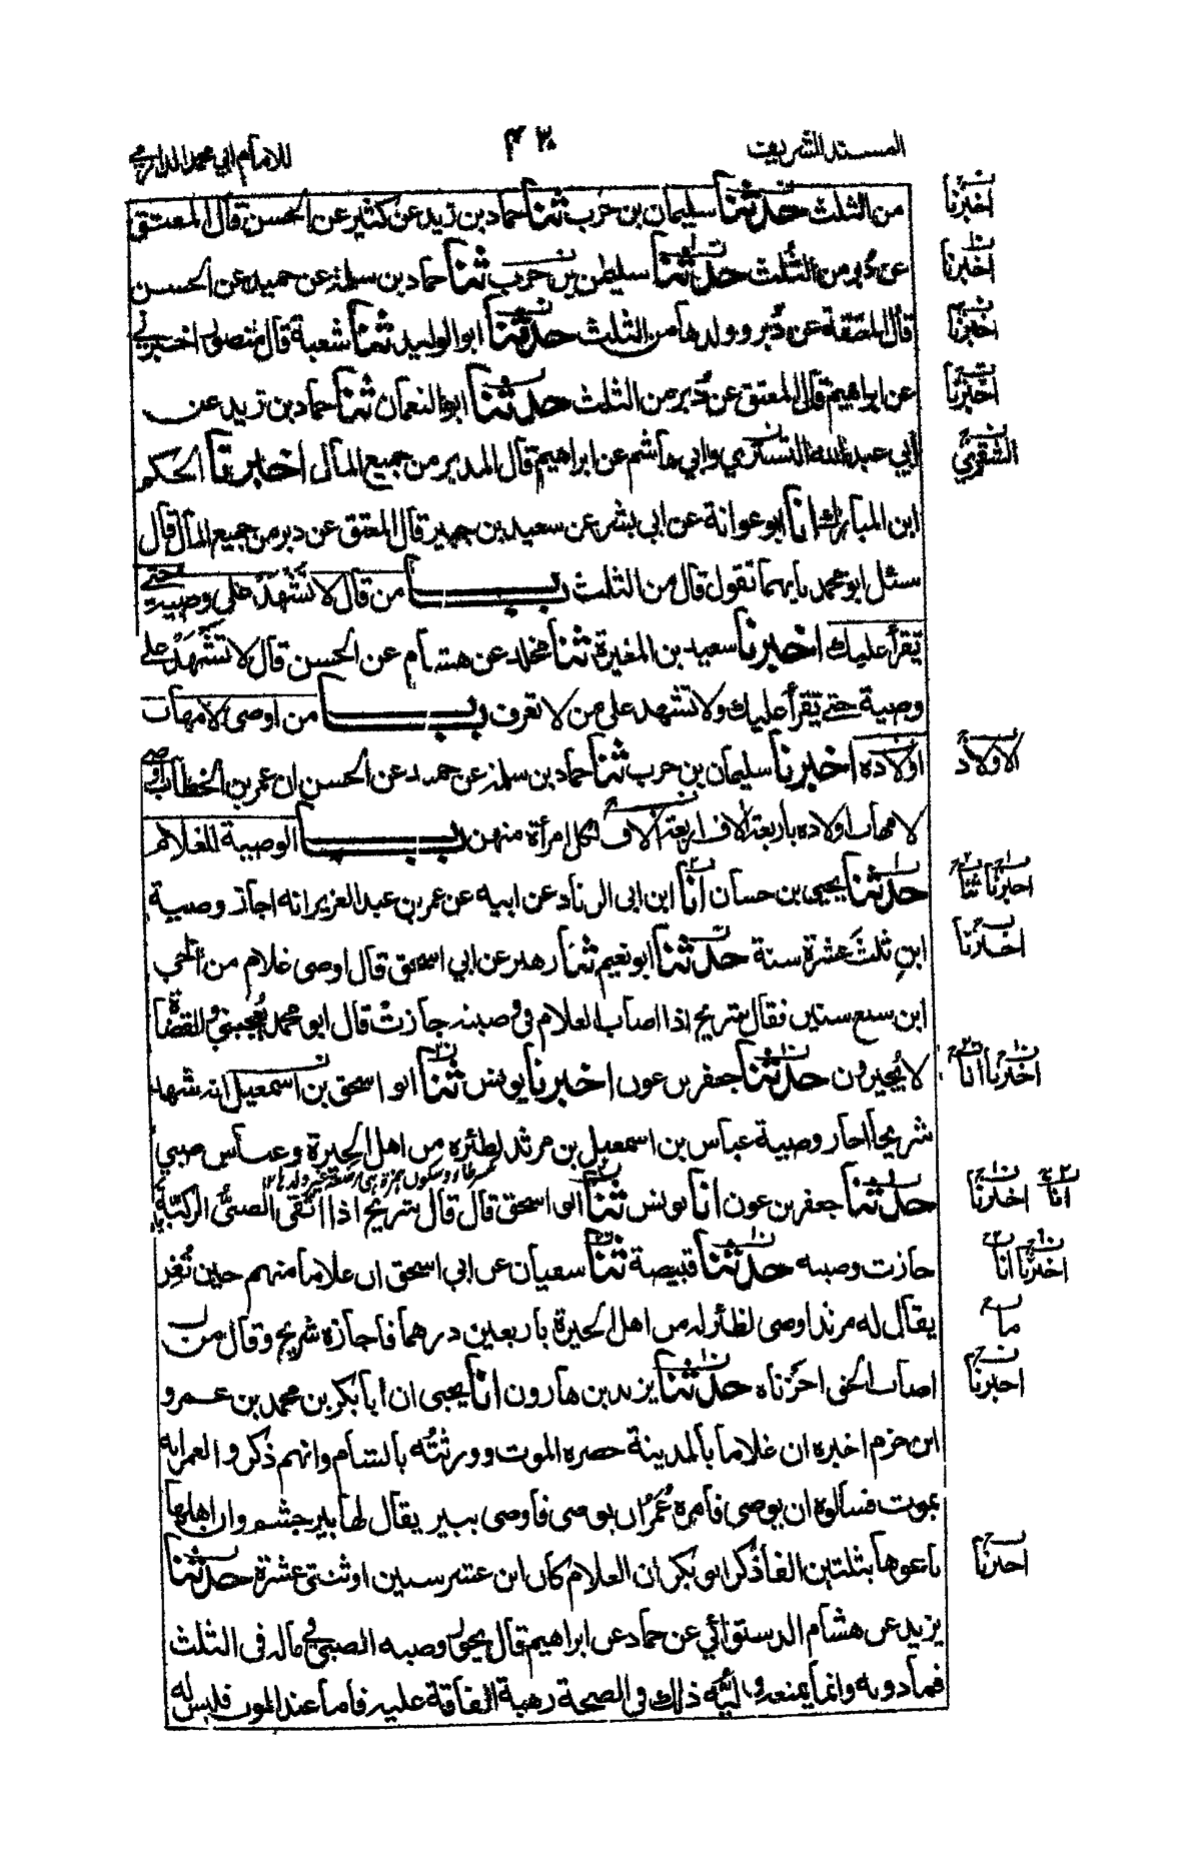 المسند الشريف
للامام ابي محمد الدارمي
من الثلث حدثنا سليمان بن حرب ثنا حماد بن زيد عن كثير عن الحسن قال المعتق
اخبرنا
عن دُبر من الثُلث حدثنا سليمٰن بن حرب ثنا حماد بن سلمة عن حميد عن الحسن
اخبرنا
قال المعتقة عن دُبر وولدها من الثلث حدثنا ابو الوليد ثنا شعبة قال منصور اخبرني
اخبرنا
عن ابراهيم قال المعتق عن دُبر من الثلث حدثنا ابو النعمان ثنا حماد بن زيد عن
اخبرنا
ابي عبد الله وابي هاشم عن ابراهيم قال المدبر من جميع المال اخبرنا الحكم
الشقري
ابن المبارك انا ابو عوانة عن ابي بشر عن سعيد بن جبير قال المعتق عن دبر من جميع المال قال
سئل ابو محمد بايهما تقول قال من الثلث باب من قال لا تشهد على وصية حتى
يقرأ عليك اخبرنا سعيد بن المغيرة ثنا مخلد عن هشام عن الحسن قال لا تشهد على
وصية حتى يقرأ عليك ولا تشهد على من لا تعرف باب من اوصى لامهات
اولاده اخبرنا سليمان بن حرب ثنا حماد بن سلمة عن حميد عن الحسن ان عمر بن الخطاب اوصى
الاولاد
لامهات اولاده باربعة آلاف اربعة آلاف لكل امرأة منهن باب الوصية للغلام
حدثنا يحيى بن حسان انا ابن ابي الزناد عن ابيه عن عمر بن عبد العزيز انه اجاز وصية
اخبرنا ثنا
ابن ثلث عشرة سنة حدثنا ابو نعيم ثنا زهير عن ابي اسحق قال اوصى غلام من الحي
اخبرنا
ابن سبع سنين فقال شريح اذا اصاب الغلام في وصيته جازت قال ابو محمد يُعجبني والقضاة
لا يُجيزون حدثنا جعفر بن عون اخبرنا يونس ثنا ابو اسحق بن اسمعيل انه شهد
اخبرنا انا
شريحا اجاز وصية عباس بن اسمعيل بن مرثد لظئره من اهل الحيرة وعباس صبي
حدثنا جعفر بن عون انا يونس ثنا ابو اسحق قال قال شريح اذا اتقى الصبيُّ الركيّة
اخبرنا انا
جازت وصيته حدثنا قبيصة ثنا سفيان عن ابي اسحق ان غلاما منهم حين ثُغِر
اخبرنا انا
يقال له مرثد اوصى لظئر له من اهل الحيرة باربعين درهما فاجازه شريح وقال من
ما
اصاب الحق اجزناه حدثنا يزيد بن هارون انا يحيى ان ابا بكر بن محمد بن عمرو
اخبرنا
ابن حزم اخبره ان غلاما بالمدينة حضره الموت وورثتُه بالشام وانهم ذكروا لعمر انه
يموت فسألوه ان يوصي فامره عُمَرُ ان يوصي فاوصى ببير يقال لها بير جشم وان اهلها
باعوها بثلثين الفا ذكر ابو بكر ان الغلام كان ابن عشر سنين او ثنتي عشرة حدثنا
اخبرنا
يزيد عن هشام الدستوائي عن حماد عن ابراهيم قال يجوز وصية الصبي في ماله في الثلث
فما دونه وانما يمنعه وليُّه ذلك في الصحة رهبة الفاقة عليه فاما عند الموت فليس له